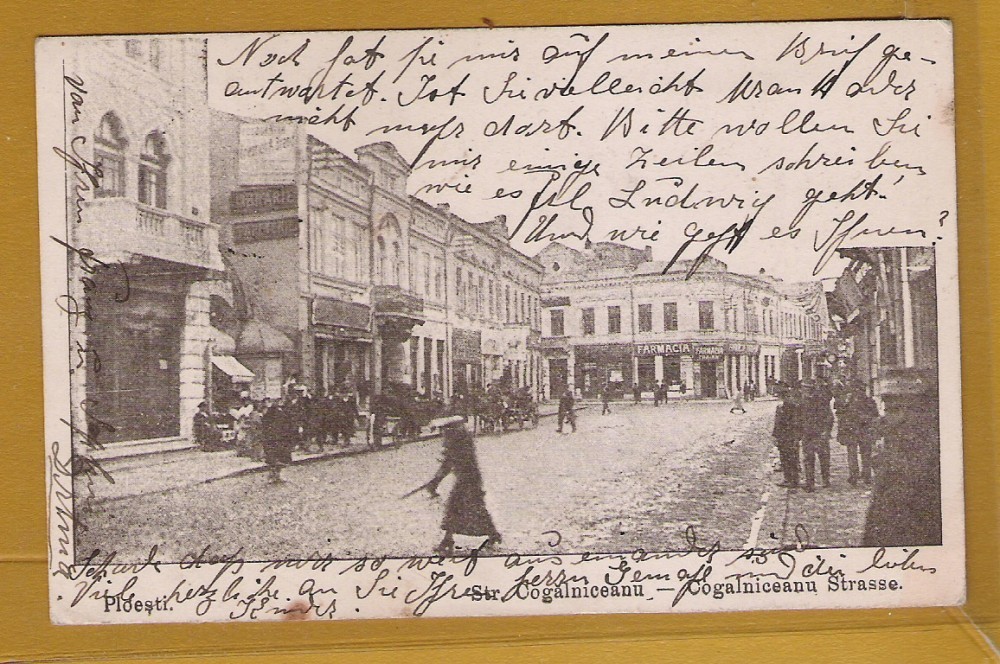 Noch hat sie mir auf meinen Brief ge-
antwortet. Ist Sie vielleicht krank oder
nicht mehr dort. Bitte wollen Sie
mir einige Zeilen schreiben
wie es Ludwig geht.
Und wie geht es Ihnen?
LIBRARIE
FARMACIA
FARMACIA
Schade dass wir so weit auseinander sind
Viele herzliche an Sie Ihren Herrn Gemahl und die lieben
Kinder.
Ploeşti.
Str. Cogâlniceanu — Cogalniceanu Strasse.
von Ihrer